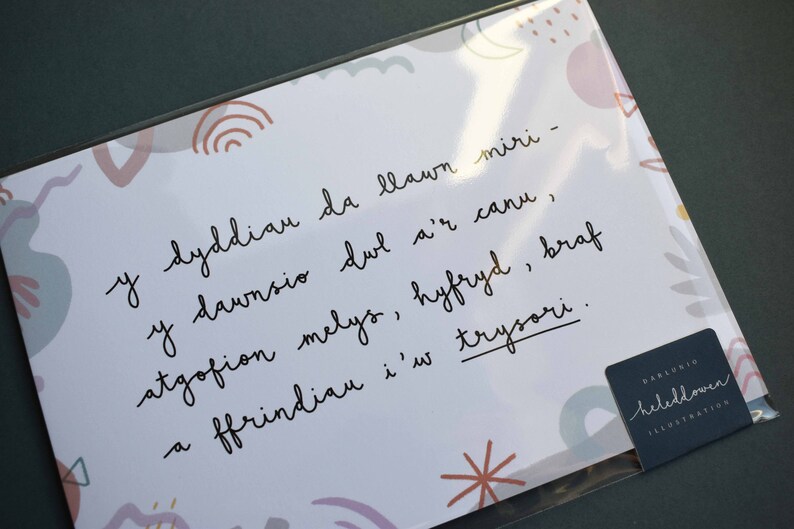 y dyddiau da llawn miri -
y dawnsio dwl a'r canu,
atgofion melys, hyfryd, braf
a ffrindiau i'w trysori.
DARLUNIO
heleddowen
ILLUSTRATION